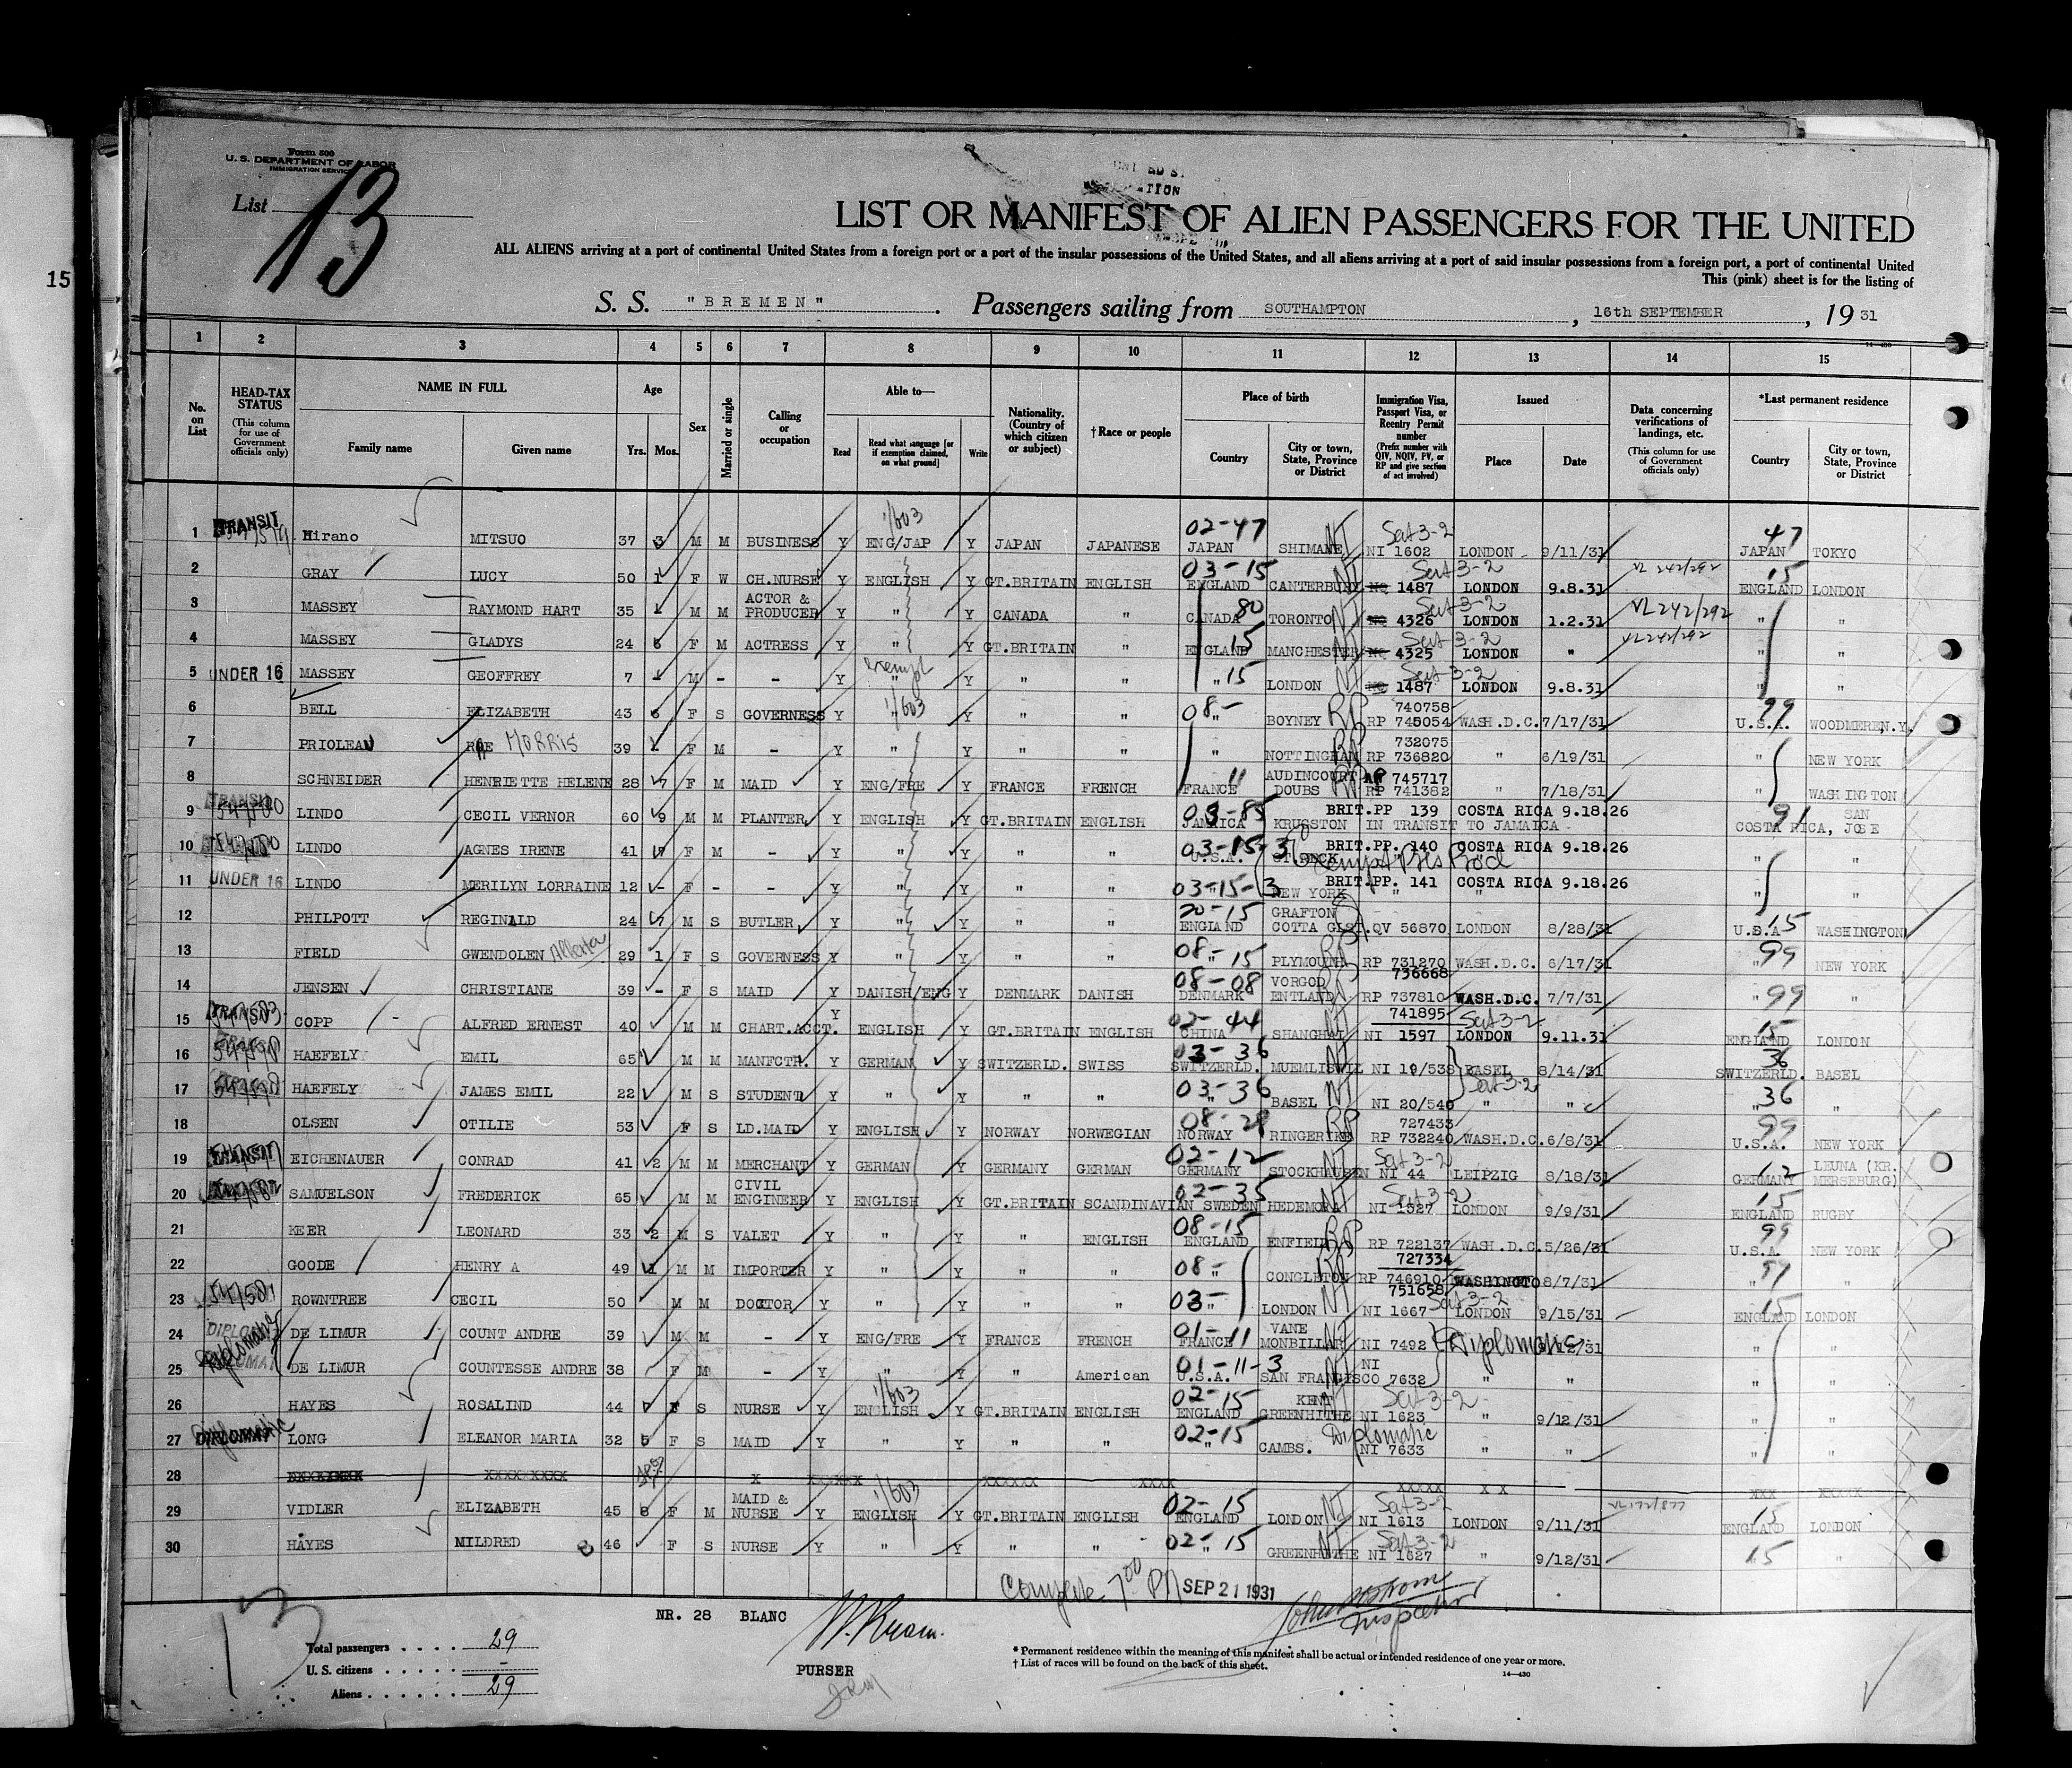 15
Form 500
U. S. DEPARTMENT OF LABOR
IMMIGRATION SERVICE
List 13
LIST OR MANIFEST OF ALIEN PASSENGERS FOR THE UNITED
ALL ALIENS arriving at a port of continental United States from a foreign port or a port of the insular possessions of the United States, and all aliens arriving at a port of said insular possessions from a foreign port, a port of continental United
This (pink) sheet is for the listing of
S. S. "BREMEN". Passengers sailing from SOUTHAMPTON, 16th SEPTEMBER, 1931
1 2 3 4 5 6 7 8 9 10 11 12 13 14 15
No. on List
HEAD-TAX STATUS (This column for use of Government officials only)
NAME IN FULL Family name Given name
Age Yrs. Mos.
Sex
Married or single
Calling or occupation
Able to— Read Read what language [or if exemption claimed, on what ground] Write
Nationality. (Country of which citizen or subject)
†Race or people
Place of birth Country City or town, State, Province or District
Immigration Visa, Passport Visa, or Reentry Permit number (Prefix number with QIV, NQIV, PV, or RP and give section of act involved)
Issued Place Date
Data concerning verifications of landings, etc. (This column for use of Government officials only)
*Last permanent residence Country City or town, State, Province or District
1 TRANSIT Hirano MITSUO 37 3 M M BUSINESS Y ENG/JAP 1/603 Y JAPAN JAPANESE 02-47 JAPAN SHIMANE NI 1602 Sect 3-2 LONDON 9/11/31 47 JAPAN TOKYO
2 GRAY LUCY 50 1 F W CH.NURSE Y ENGLISH Y GT.BRITAIN ENGLISH 03-15 ENGLAND CANTERBURY 1487 Sect 3-2 LONDON 9.8.31 VL 242/292 15 ENGLAND LONDON
3 MASSEY RAYMOND HART 35 M M ACTOR & PRODUCER Y " Y CANADA " 80 CANADA TORONTO NI 4326 Sect 3-2 LONDON 1.2.31 VL 242/292 " "
4 MASSEY GLADYS 24 6 F M ACTRESS Y " Y GT.BRITAIN " 15 ENGLAND MANCHESTER NI 4325 Sect 3-2 LONDON " VL 242/292 " "
5 UNDER 16 MASSEY GEOFFREY 7 - M - - Y exempt " Y " " " 15 LONDON NI 1487 Sect 3-2 LONDON 9.8.31 " "
6 BELL ELIZABETH 43 6 F S GOVERNESS Y 1/603 " Y " " 08- " BOYNEY RP 740758 RP 745054 WASH.D.C. 7/17/31 99 U.S.A. WOODMEREN,Y.
7 PRIOLEAU RAE MORRIS 39 - F M - Y " Y " " " NOTTINGHAM RP 732075 RP 736820 " 6/19/31 " NEW YORK
8 SCHNEIDER HENRIETTE HELENE 28 7 F M MAID Y ENG/FRE Y FRANCE FRENCH 11 FRANCE AUDINCOURT DOUBS RP 745717 RP 741382 " 7/18/31 " WASHINGTON
9 TRANSIT LINDO CECIL VERNOR 60 9 M M PLANTER Y ENGLISH Y GT.BRITAIN ENGLISH 03-85 JAMAICA KRUGSTON BRIT.PP 139 COSTA RICA 9.18.26 IN TRANSIT TO JAMAICA 91 COSTA RICA, SAN JOSE
10 LINDO AGNES IRENE 41 7 F M - Y " Y " " 03-15-3 U.S.A. BRIT.PP. 140 COSTA RICA 9.18.26 " "
11 UNDER 16 LINDO MERILYN LORRAINE 12 - F - - Y " Y " " 03-15-3 " NEW YORK BRIT.PP. 141 COSTA RICA 9.18.26 " "
12 PHILPOTT REGINALD 24 7 M S BUTLER Y " Y " " 20-15 ENGLAND GRAFTON COTTA GLST. QV 56870 LONDON 8/28/31 15 U.S.A WASHINGTON
13 FIELD GWENDOLEN Alberta 29 1 F S GOVERNESS Y " Y " " 08-15 " PLYMOUTH RP 731270 WASH.D.C. 6/17/31 99 " NEW YORK
14 JENSEN CHRISTIANE 39 - F S MAID Y DANISH/ENG Y DENMARK DANISH 08-08 DENMARK VORGOD ENTLAND 736668 RP 737810 WASH.D.C. 7/7/31 " 99 "
15 TRANSIT COPP ALFRED ERNEST 40 M M CHART.ACCT. Y ENGLISH Y GT.BRITAIN ENGLISH 02-44 CHINA SHANGHAI 741895 NI 1597 Sect 3-2 LONDON 9.11.31 15 ENGLAND LONDON
16 HAEFELY EMIL 65 M M MANFCTR. Y GERMAN Y SWITZERLD. SWISS 03-36 SWITZERLD. MUEMLISWIL NI 19/538 BASEL 8/14/31 36 SWITZERLD. BASEL
17 HAEFELY JAMES EMIL 22 M S STUDENT Y " Y " " 03-36 " BASEL NI 20/540 Sect 3-2 " " 36 " "
18 OLSEN OTILIE 53 F S LD.MAID Y ENGLISH Y NORWAY NORWEGIAN 08-29 NORWAY RINGERIKE 727433 RP 732240 WASH.D.C. 6/8/31 99 U.S.A. NEW YORK
19 TRANSIT EICHENAUER CONRAD 41 2 M M MERCHANT Y GERMAN Y GERMANY GERMAN 02-12 GERMANY STOCKHAUSEN NI 44 Sect 3-2 LEIPZIG 8/18/31 12 GERMANY LEUNA (KR. MERSEBURG)
20 SAMUELSON FREDERICK 65 M M CIVIL ENGINEER Y ENGLISH Y GT.BRITAIN SCANDINAVIAN 02-35 SWEDEN HEDEMORA NI 1527 Sect 3-2 LONDON 9/9/31 15 ENGLAND RUGBY
21 KEER LEONARD 33 2 M S VALET Y " Y ENGLISH 08-15 ENGLAND ENFIELD RP 722137 WASH.D.C. 5/26/31 99 U.S.A. NEW YORK
22 GOODE HENRY A 49 1 M M IMPORTER Y " Y " " 08- " CONGLETON 727334 RP 746910 WASHINGTO 8/7/31 " "
23 ROWNTREE CECIL 50 M M DOCTOR Y " Y " " 03- " LONDON 751658 NI 1667 Sect 3-2 LONDON 9/15/31 15 ENGLAND LONDON
24 Diplomatic DE LIMUR COUNT ANDRE 39 M M - Y ENG/FRE Y FRANCE FRENCH 01-11 FRANCE VANE MONBILLAR NI 7492 Diplomatic 9/12/31 " "
25 DE LIMUR COUNTESSE ANDRE 38 F M - Y " Y " American 01-11-3 U.S.A. SAN FRANCISCO NI 7632 " " " "
26 HAYES ROSALIND 44 7 F S NURSE Y 1/603 ENGLISH Y GT.BRITAIN ENGLISH 02-15 ENGLAND KENT GREENHITHE NI 1623 Sect 3-2 " 9/12/31 " "
27 Diplomatic LONG ELEANOR MARIA 32 5 F S MAID Y " Y " " 02-15 " CAMBS. Diplomatic NI 7633 " " " "
28
29 VIDLER ELIZABETH 45 8 F M MAID & NURSE Y 1/603 ENGLISH Y GT.BRITAIN ENGLISH 02-15 ENGLAND LONDON NI 1613 Sect 3-2 LONDON 9/11/31 VL 172/877 15 ENGLAND LONDON
30 HAYES MILDRED 46 F S NURSE Y " Y " " 02-15 " GREENHITHE NI 1627 Sect 3-2 " 9/12/31 15 "
Complete 7 00 PM SEP 21 1931
Inspector
NR. 28 BLANC
13
PURSER
Total passengers .... 29
U. S. citizens ..... -
Aliens ...... 29
* Permanent residence within the meaning of this manifest shall be actual or intended residence of one year or more.
† List of races will be found on the back of this sheet.
14—430